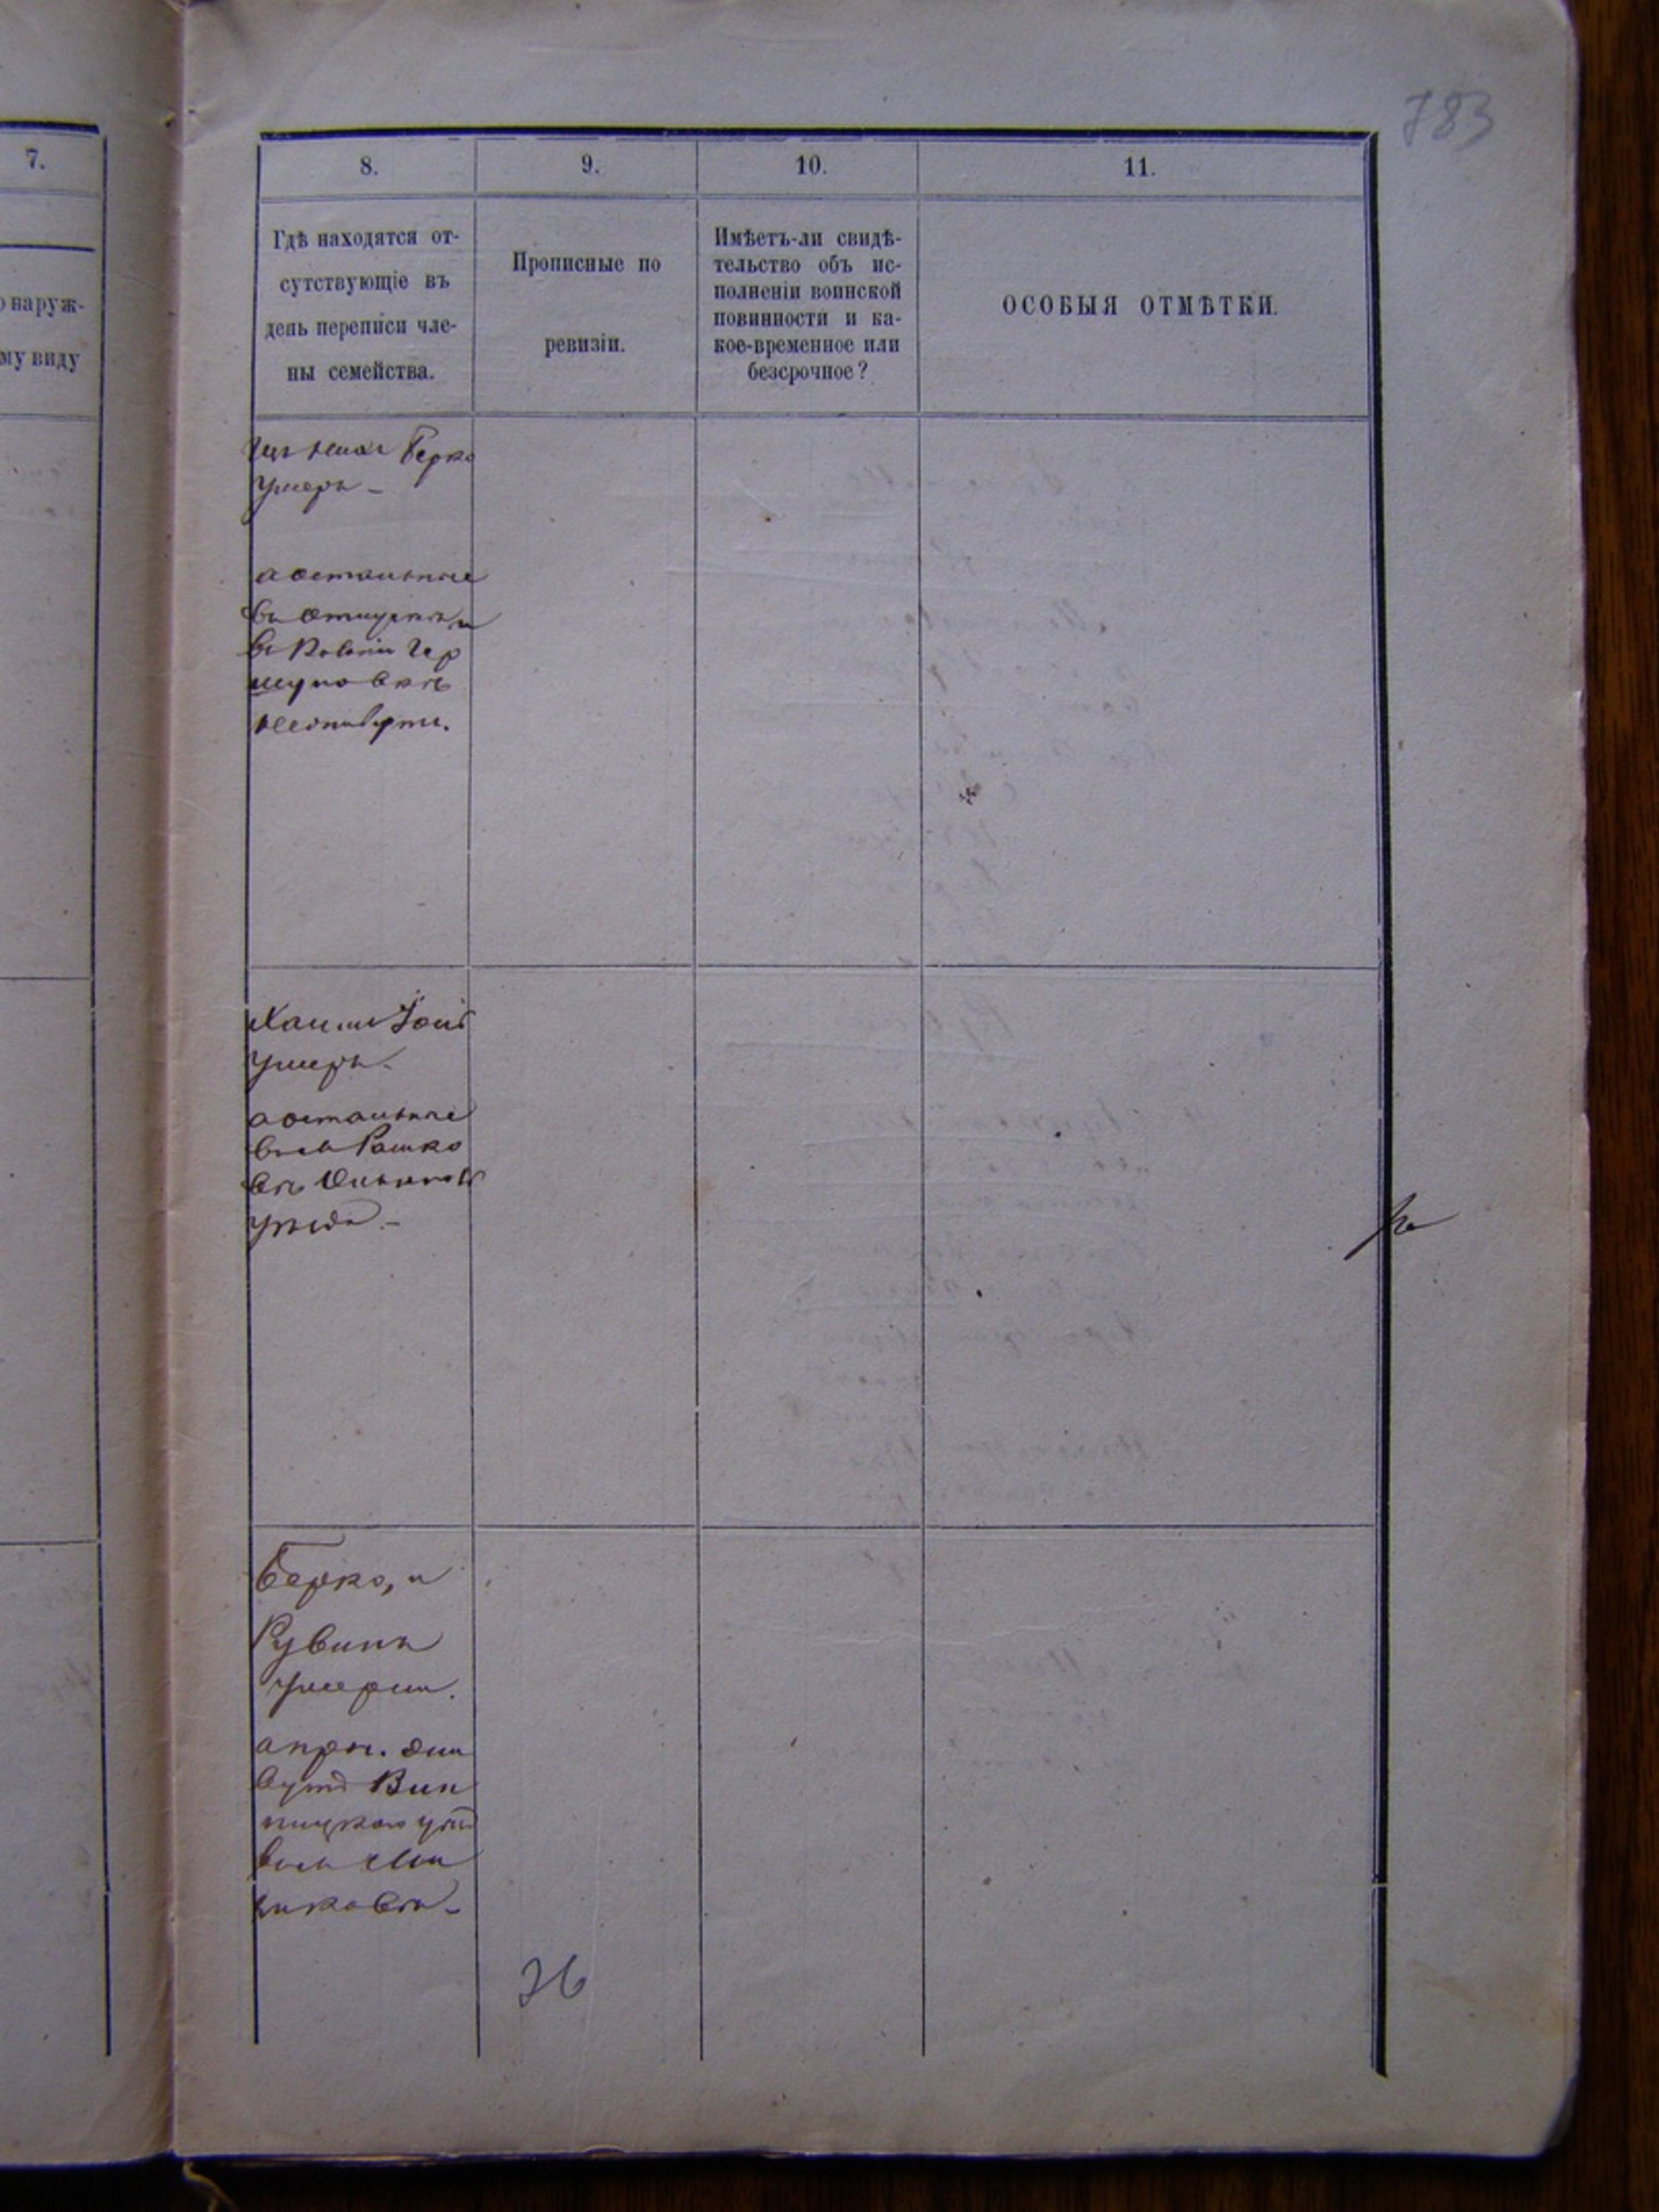 783
7.
о наруж-
му виду
8.
9.
10.
11.
Гдѣ находятся от-
сутствующіе въ
день переписи чле-
ны семейства.
Прописные по
ревизіи.
Имѣетъ-ли свидѣ-
тельство объ ис-
полненіи воинской
повинности и ка-
кое-временное или
безсрочное?
ОСОБЫЯ ОТМѢТКИ.
Берко
умеръ -
а остальные
въ
въ Колоніи Чер
Хаимъ
умеръ -
а остальные
въ с Рашко
вѣ
уѣзда. -
Берко, и
Рувинъ
умерли.
а проч. жи
вутъ Вин
ницкаго уѣзд
въ с
36